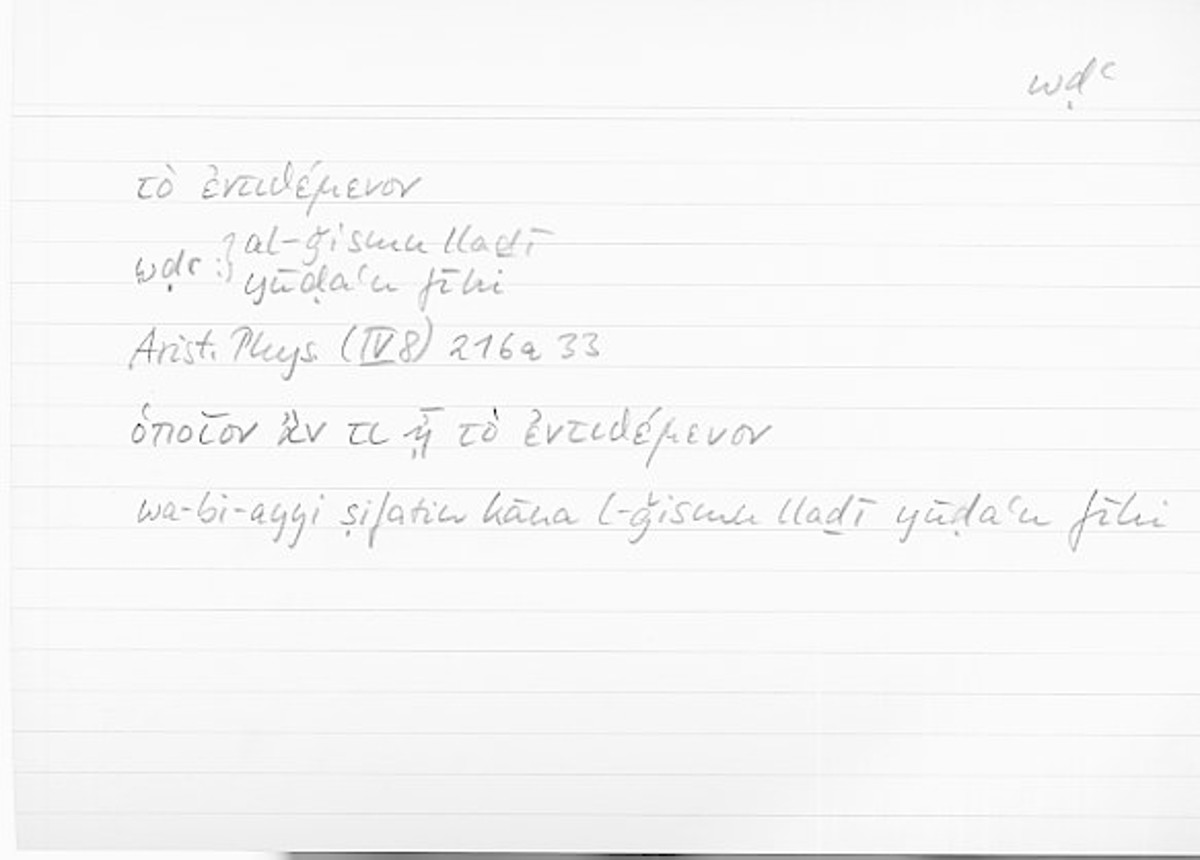 wḍʿ
τὸ ἐντιθέμενον
wḍʿ: } al-ǧismu llaḏī
yūḍaʿu fīhi
Arist. Phys. (IV 8) 216a 33
ὁποῖον ἄν τι ᾖ τὸ ἐντιθέμενον
wa-bi-ayyi ṣifatin kāna l-ǧismu llaḏī yūḍaʿu fīhi